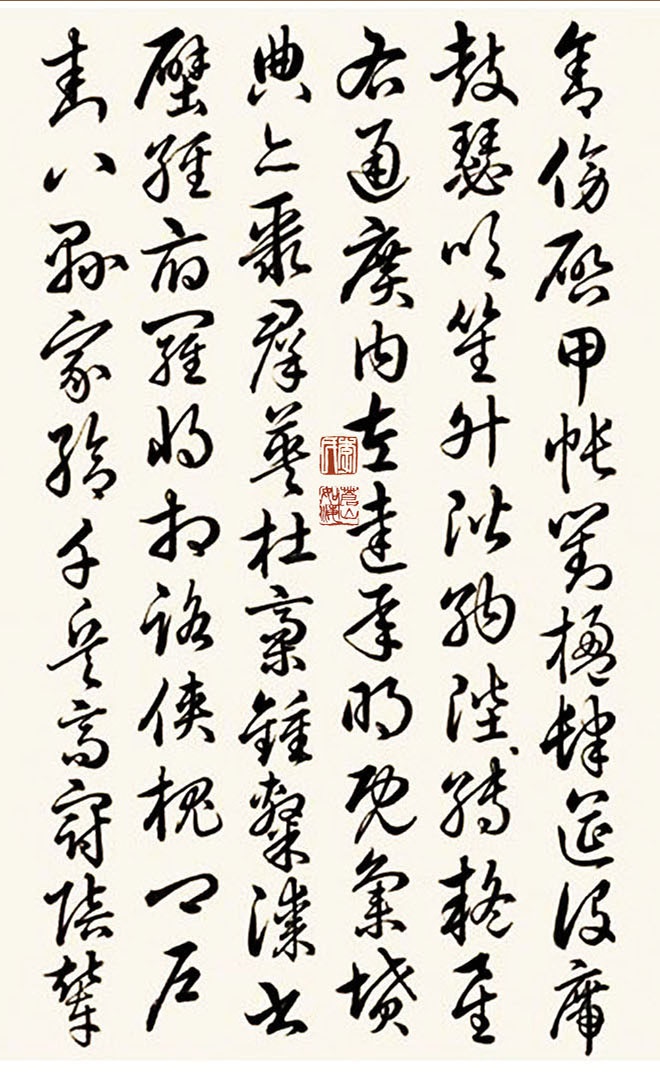 舍傍啟甲帳對楹肆筵設席
鼓瑟吹笙升階納陛轉疑星
右通廣內左達承明既集墳
典亦聚群英杜稾鍾隸漆書
壁經府羅將相路俠槐卿戶
封八縣家給千兵高冠陪輦
蒼山如海